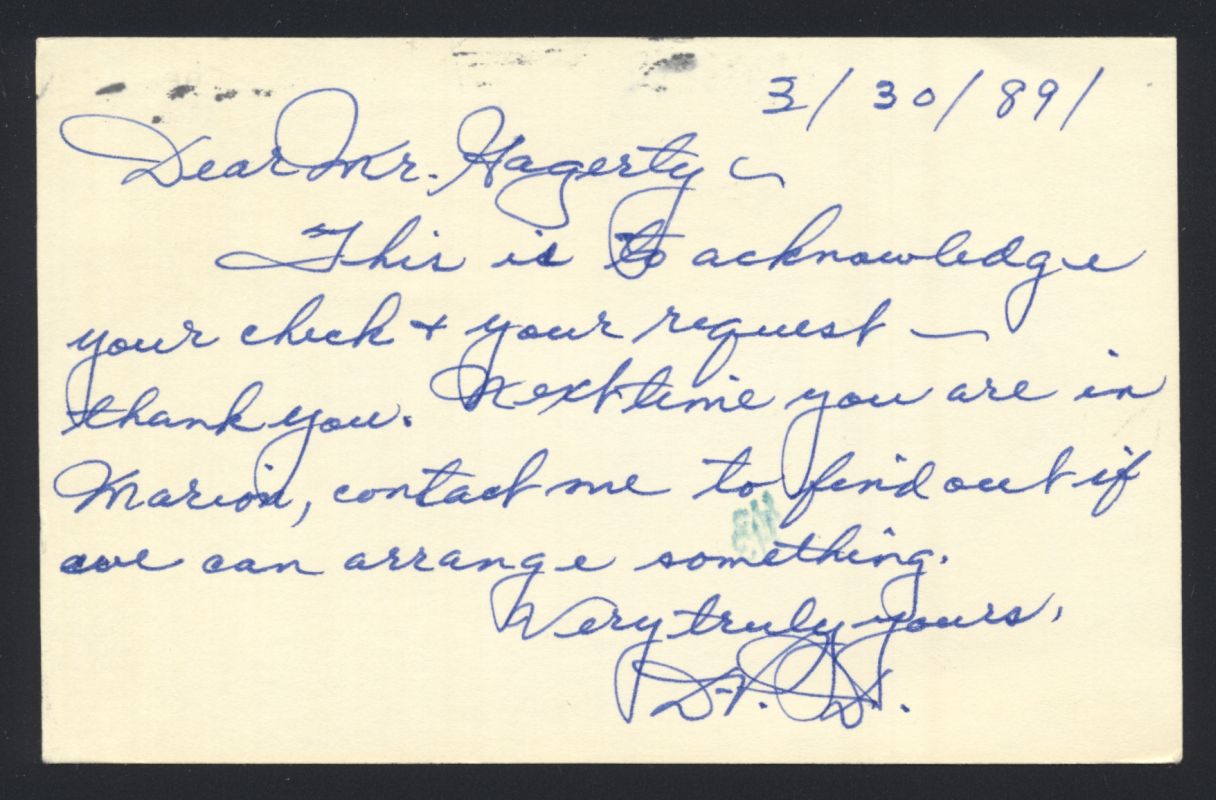 3/30/89/
Dear Mr. Hagerty —
This is to acknowledge
your check + your request —
thank you. Next time you are in
Marion, contact me to find out if
we can arrange something.
Very truly yours,